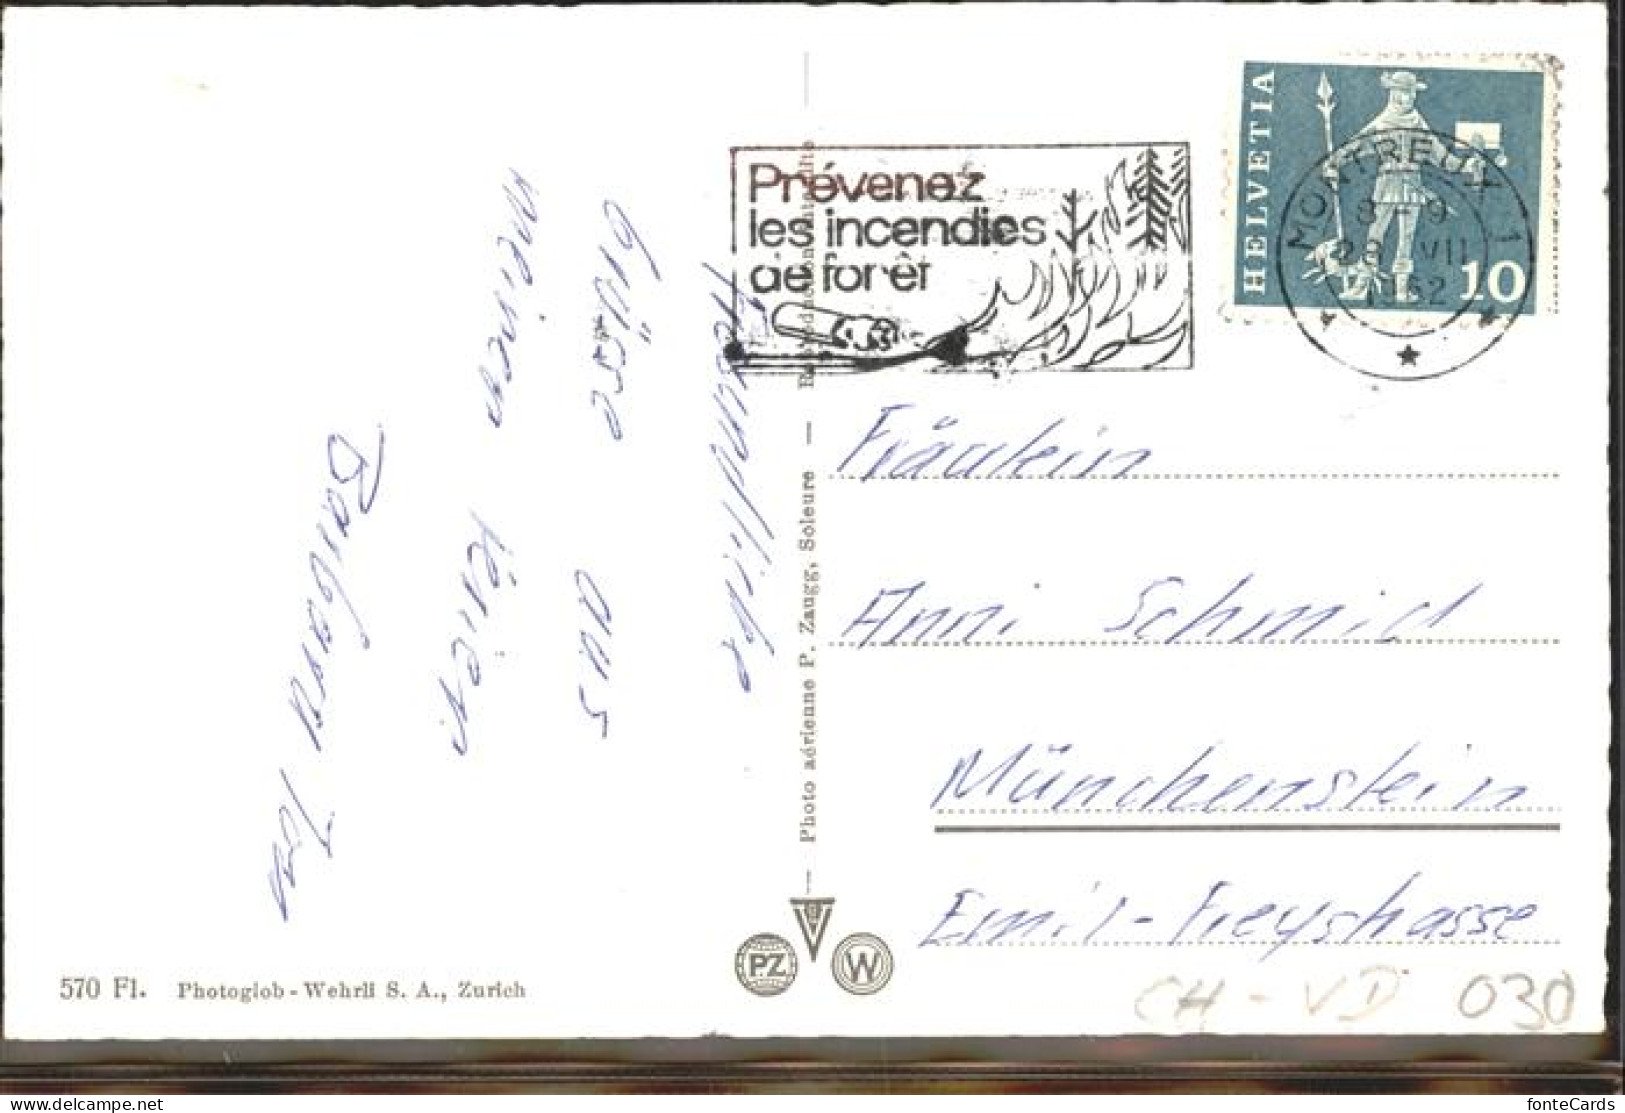 HELVETIA
10
MONTREUX 1
8-9
28 VII
1962
Prévenez
les incendies
de forêt
Freundliche
Grüsse aus
meinen
Ferien.
Fräulein
Anni Schmid
Münchenstein
Emil-Freystrasse
— Photo aérienne P. Zaugg, Soleure — Reproduction interdite
PZ
W
570 Fl. Photoglob-Wehrli S. A., Zurich
CH-VD 030
fonteCards